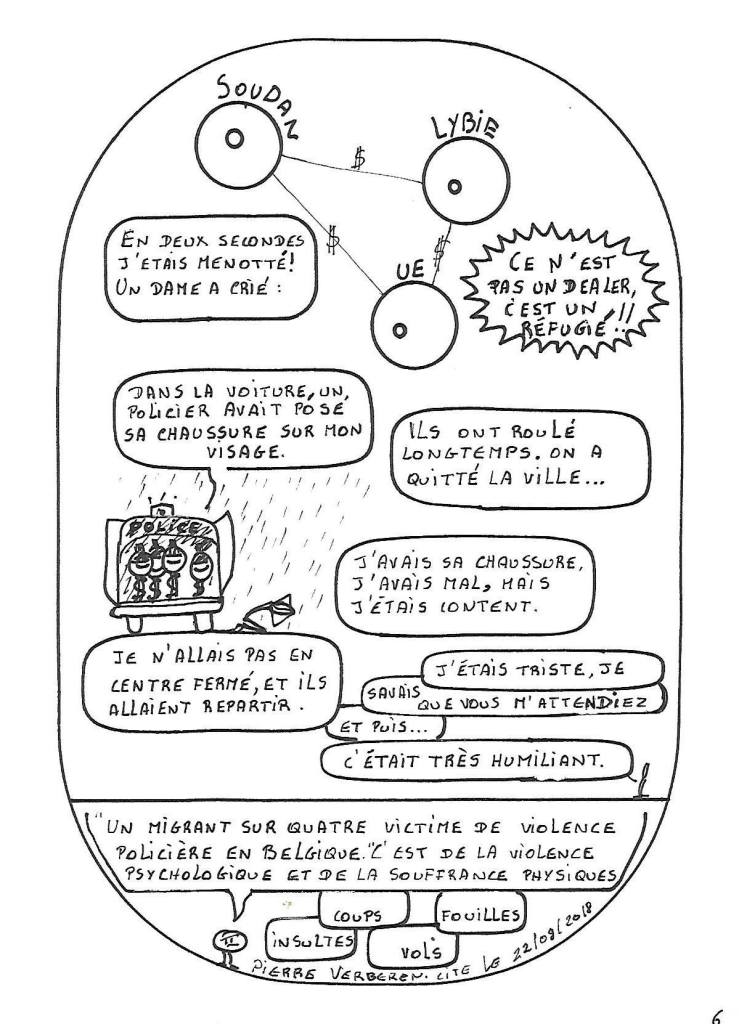 SOUDAN
LYBIE
$
$
$
UE
EN DEUX SECONDES
J'ETAIS MENOTTÉ!
UN DAME A CRIÉ :
CE N'EST
PAS UN DEALER,
C'EST UN
RÉFUGIÉ!!
DANS LA VOITURE, UN,
POLICIER AVAIT POSÉ
SA CHAUSSURE SUR MON
VISAGE.
ILS ONT ROULÉ
LONGTEMPS. ON A
QUITTÉ LA VILLE...
POLICE
$ $ $ $
J'AVAIS SA CHAUSSURE,
J'AVAIS MAL, MAIS
J'ÉTAIS CONTENT.
JE N'ALLAIS PAS EN
CENTRE FERMÉ, ET ILS
ALLAIENT REPARTIR.
J'ÉTAIS TRISTE, JE
SAVAIS QUE VOUS M'ATTENDIEZ
ET PUIS...
C'ÉTAIT TRÈS HUMILIANT.
"UN MIGRANT SUR QUATRE VICTIME DE VIOLENCE
POLICIÈRE EN BELGIQUE." C'EST DE LA VIOLENCE
PSYCHOLOGIQUE ET DE LA SOUFFRANCE PHYSIQUES
COUPS
FOUILLES
INSULTES
VOLS
PIERRE VERBEREN. CITE LE 22/09/2018
6